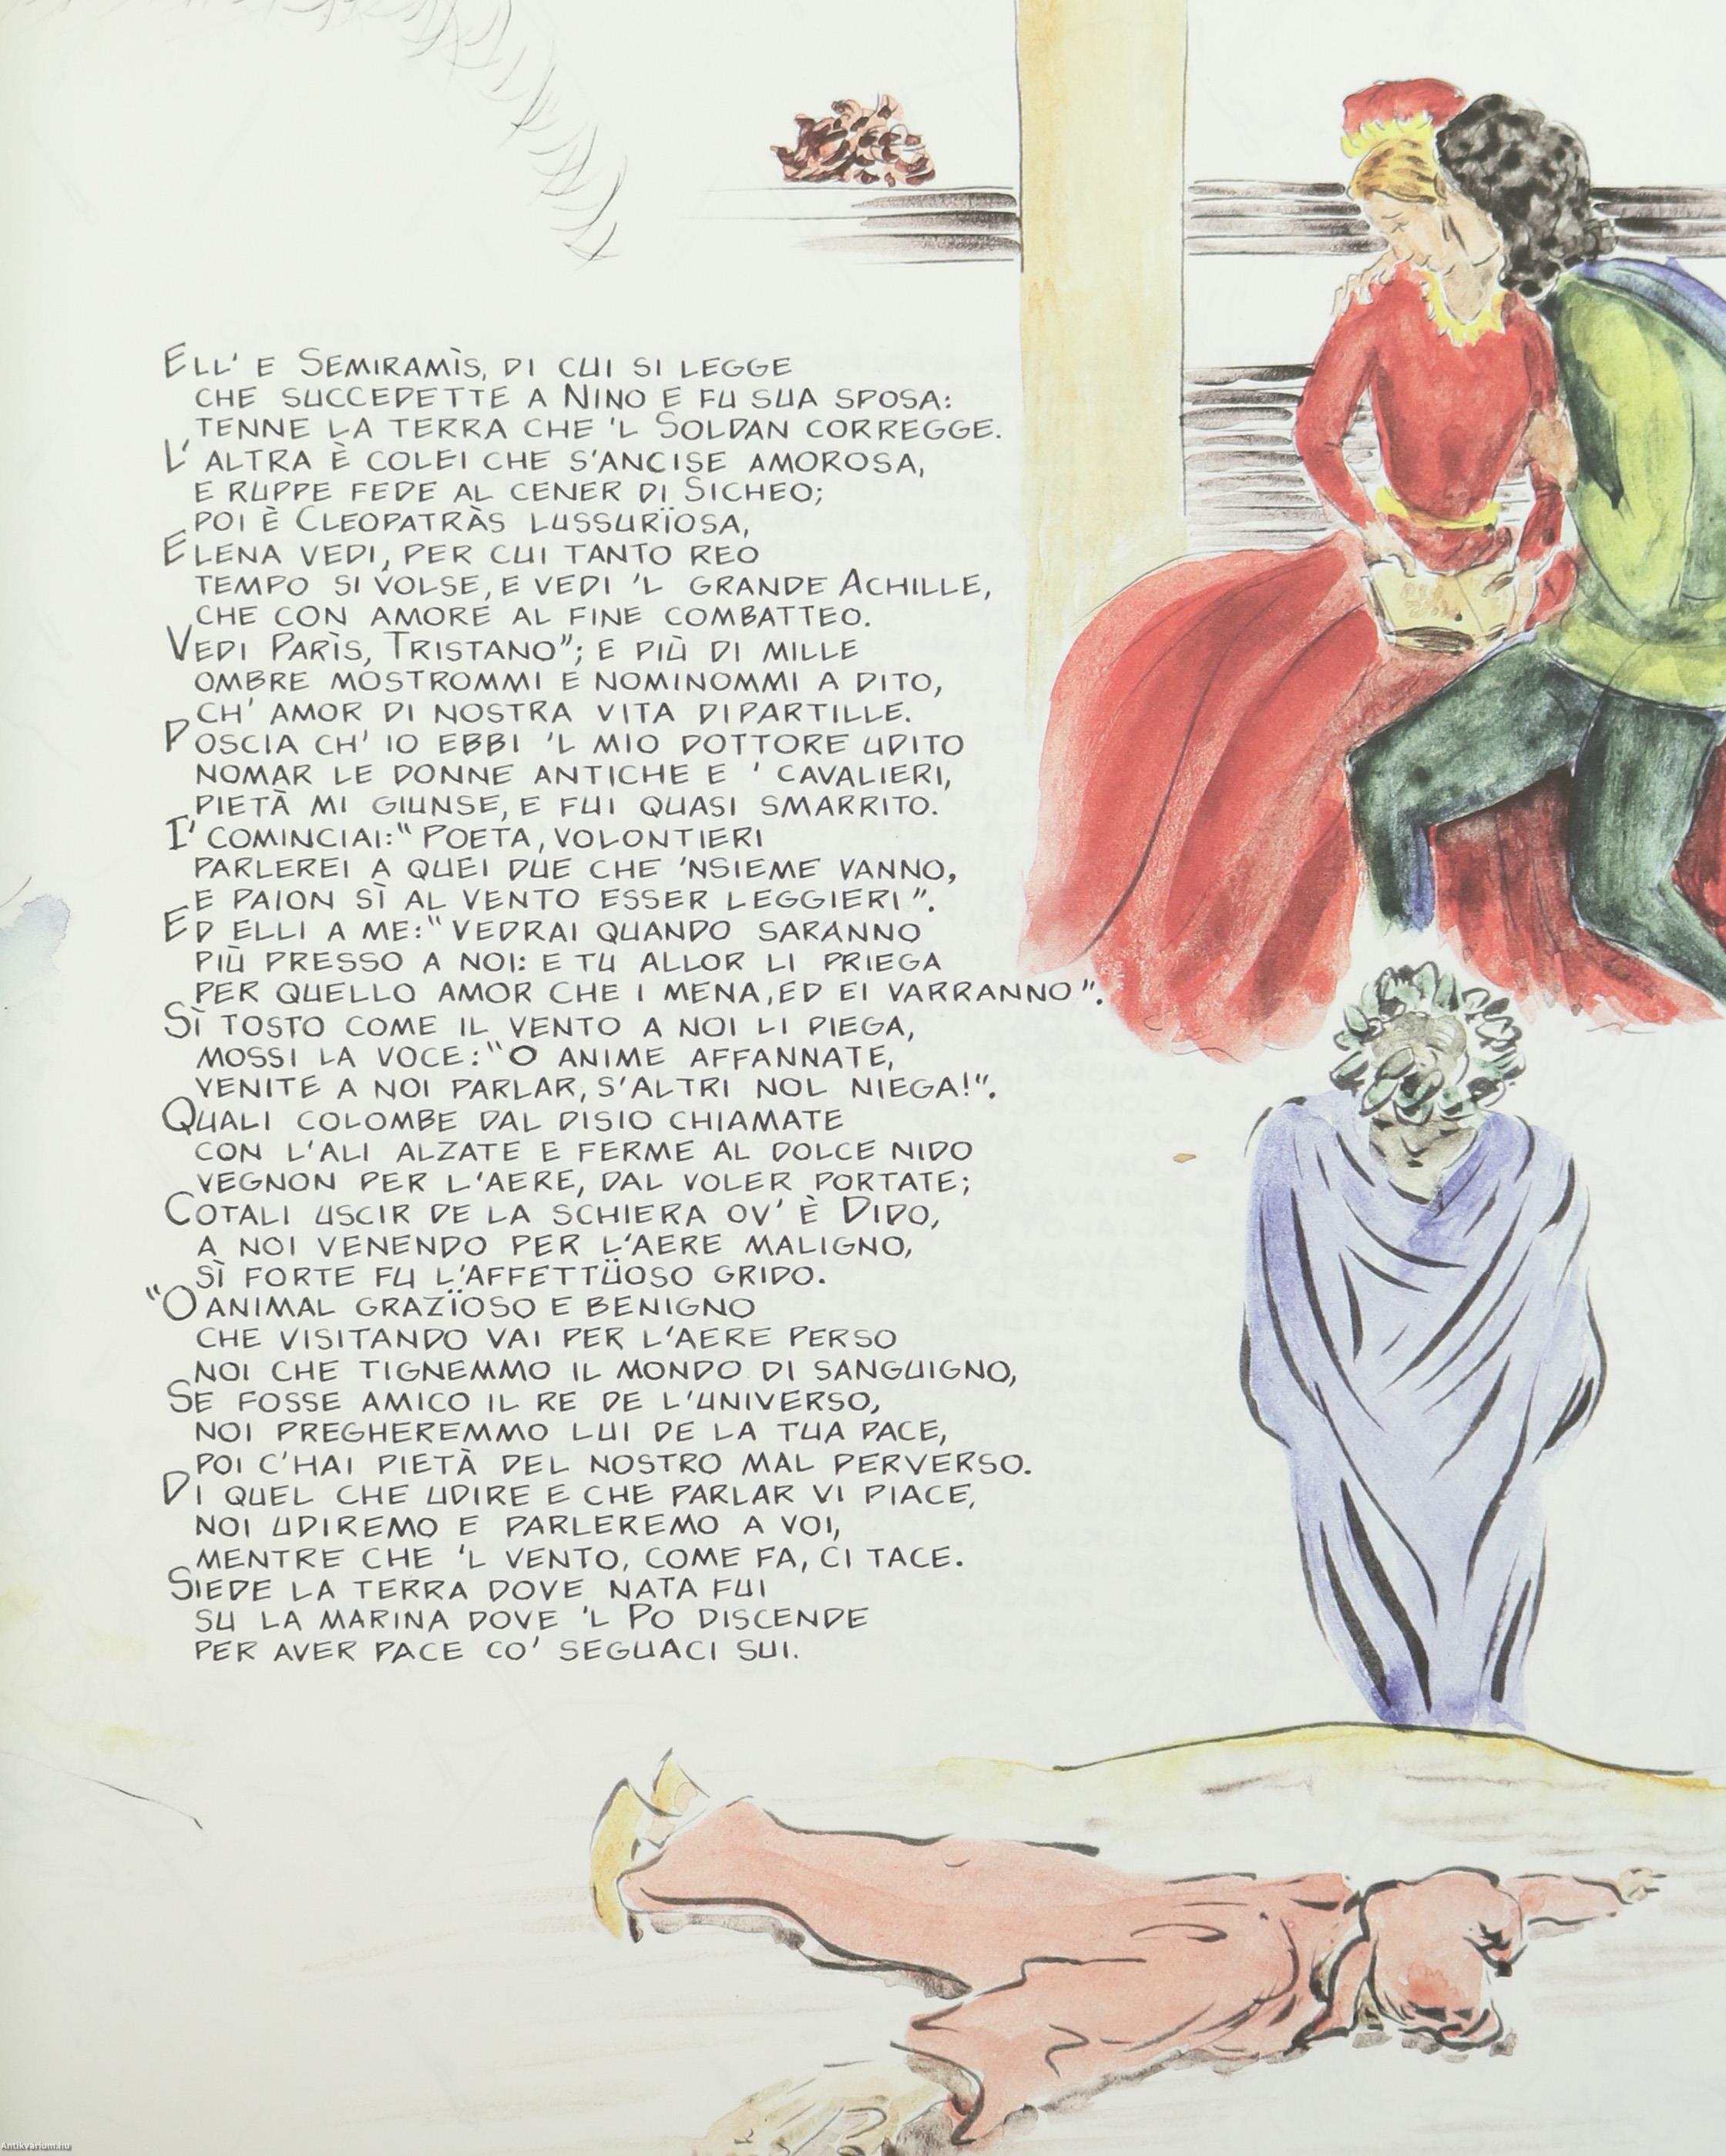 ELL' E SEMIRAMÌS, DI CUI SI LEGGE
CHE SUCCEDETTE A NINO E FU SUA SPOSA:
TENNE LA TERRA CHE 'L SOLDAN CORREGGE.
L'ALTRA È COLEI CHE S'ANCISE AMOROSA,
E RUPPE FEDE AL CENER DI SICHEO;
POI È CLEOPATRÀS LUSSURÏOSA,
ELENA VEDI, PER CUI TANTO REO
TEMPO SI VOLSE, E VEDI 'L GRANDE ACHILLE,
CHE CON AMORE AL FINE COMBATTEO.
VEDI PARÌS, TRISTANO"; E PIÙ DI MILLE
OMBRE MOSTROMMI E NOMINOMMI A DITO,
CH' AMOR DI NOSTRA VITA DIPARTILLE.
POSCIA CH' IO EBBI 'L MIO DOTTORE UDITO
NOMAR LE DONNE ANTICHE E ' CAVALIERI,
PIETÀ MI GIUNSE, E FUI QUASI SMARRITO.
I' COMINCIAI: "POETA, VOLONTIERI
PARLEREI A QUEI DUE CHE 'NSIEME VANNO,
E PAION SÌ AL VENTO ESSER LEGGIERI".
ED ELLI A ME: "VEDRAI QUANDO SARANNO
PIÙ PRESSO A NOI: E TU ALLOR LI PRIEGA
PER QUELLO AMOR CHE I MENA, ED EI VARRANNO".
SÌ TOSTO COME IL VENTO A NOI LI PIEGA,
MOSSI LA VOCE: "O ANIME AFFANNATE,
VENITE A NOI PARLAR, S'ALTRI NOL NIEGA!".
QUALI COLOMBE DAL DISIO CHIAMATE
CON L'ALI ALZATE E FERME AL DOLCE NIDO
VEGNON PER L'AERE, DAL VOLER PORTATE;
COTALI USCIR DE LA SCHIERA OV' È DIDO,
A NOI VENENDO PER L'AERE MALIGNO,
SÌ FORTE FU L'AFFETTÜOSO GRIDO.
"O ANIMAL GRAZÏOSO E BENIGNO
CHE VISITANDO VAI PER L'AERE PERSO
NOI CHE TIGNEMMO IL MONDO DI SANGUIGNO,
SE FOSSE AMICO IL RE DE L'UNIVERSO,
NOI PREGHEREMMO LUI DE LA TUA PACE,
POI C'HAI PIETÀ DEL NOSTRO MAL PERVERSO.
DI QUEL CHE UDIRE E CHE PARLAR VI PIACE,
NOI UDIREMO E PARLEREMO A VOI,
MENTRE CHE 'L VENTO, COME FA, CI TACE.
SIEDE LA TERRA DOVE NATA FUI
SU LA MARINA DOVE 'L PO DISCENDE
PER AVER PACE CO' SEGUACI SUI.
Antikvarium.hu